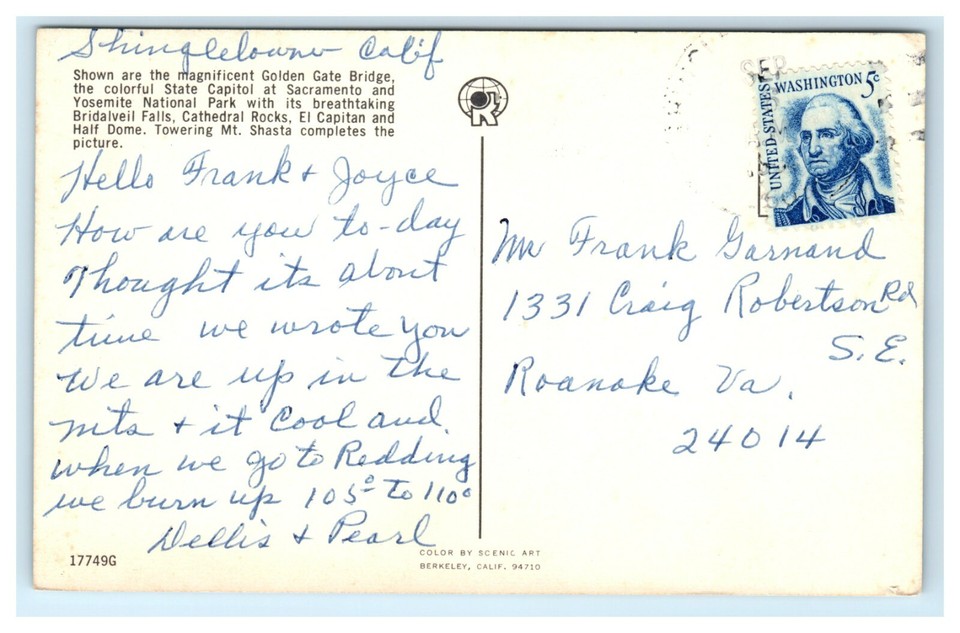 Shingletown Calif
Shown are the magnificent Golden Gate Bridge,
the colorful State Capitol at Sacramento and
Yosemite National Park with its breathtaking
Bridalveil Falls, Cathedral Rocks, El Capitan and
Half Dome. Towering Mt. Shasta completes the
picture.
Hello Frank + Joyce
How are you to-day
Thought its about
time we wrote you
We are up in the
mts + it cool and
when we go to Redding
we burn up 105° to 110°
Dellis + Pearl
17749G
COLOR BY SCENIC ART
BERKELEY, CALIF. 94710
SEP
UNITED STATES
WASHINGTON 5c
Mr Frank Garnand
1331 Craig Robertson Rd
S.E.
Roanoke Va.
24014